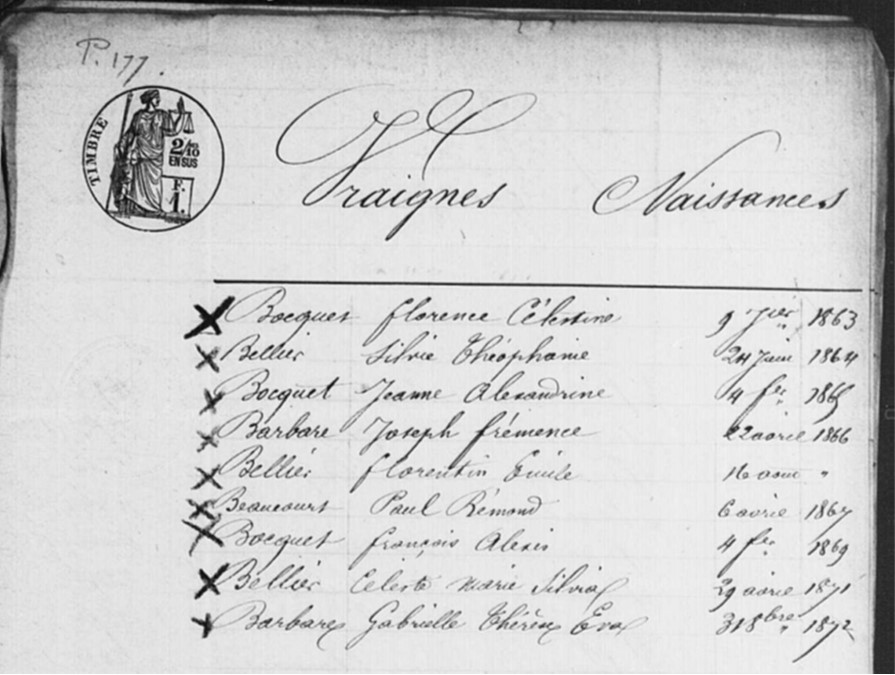 P. 177.
TIMBRE
2/10
EN SUS
F.
1.
Vraignes Naissances
Bocquet Florence Célestine 9 Jer 1863
Bellier Silvie Théophanie 24 Juin 1864
Bocquet Jeanne Alexandrine 4 fer 1865
Barbare Joseph frémence 22 avril 1866
Bellier florentin Emile 16 aout "
Beaucourt Paul Rémond 6 avril 1867
Bocquet françois Alexis 4 fer 1869
Bellier Céleste Marie Silvia 29 avril 1871
Barbare Gabrielle Thérèse Eva 31 8bre 1872